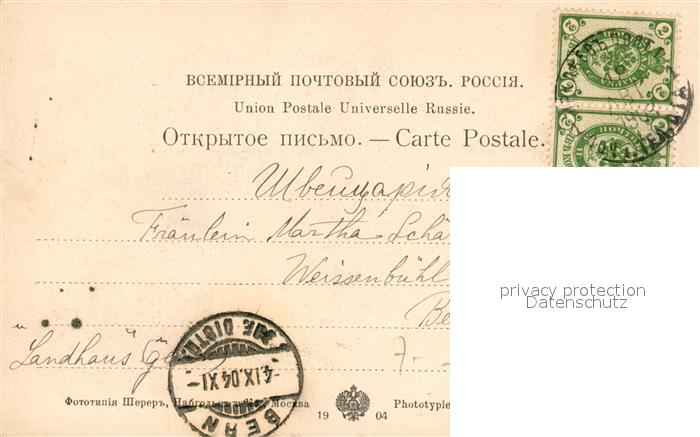 ВСЕМІРНЫЙ ПОЧТОВЫЙ СОЮЗЪ. РОССІЯ.
Union Postale Universelle Russie.
Открытое письмо. — Carte Postale.
Швейцарія
Fräulein Martha Schä
Weissenbühl
Be
privacy protection
Datenschutz
„Landhaus"
BERN
-4.IX.04.XI-
Фототипія Шереръ, Набгольцъ Москва
1904
Phototypie
2
2